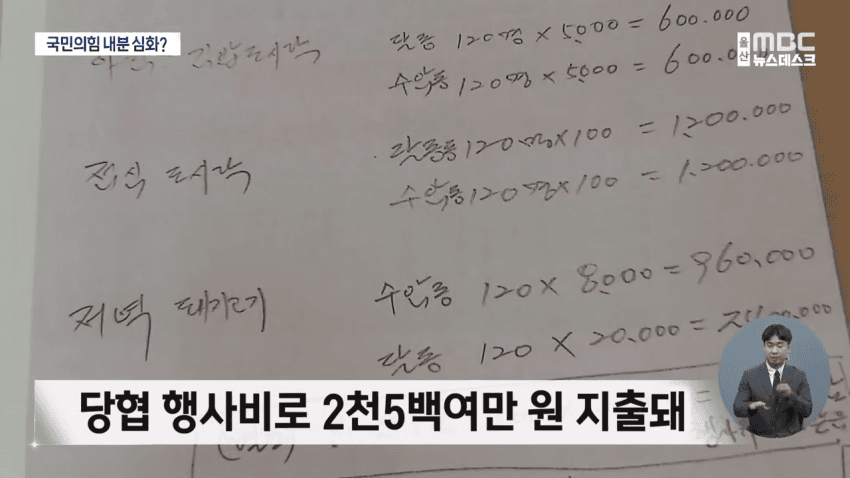 국민의힘 내분 심화?
울산 MBC
뉴스데스크
도시락 달동 120명 × 5000 = 600.000
수암동 120명 × 5000 = 600.000
점심 도시락 달동 120명×100 = 1,200.000
수암동 120명×100 = 1,200.000
저녁 수암동 120 × 8000 = 960,000
달동 120 × 20.000 =
당협 행사비로 2천5백여만 원 지출돼